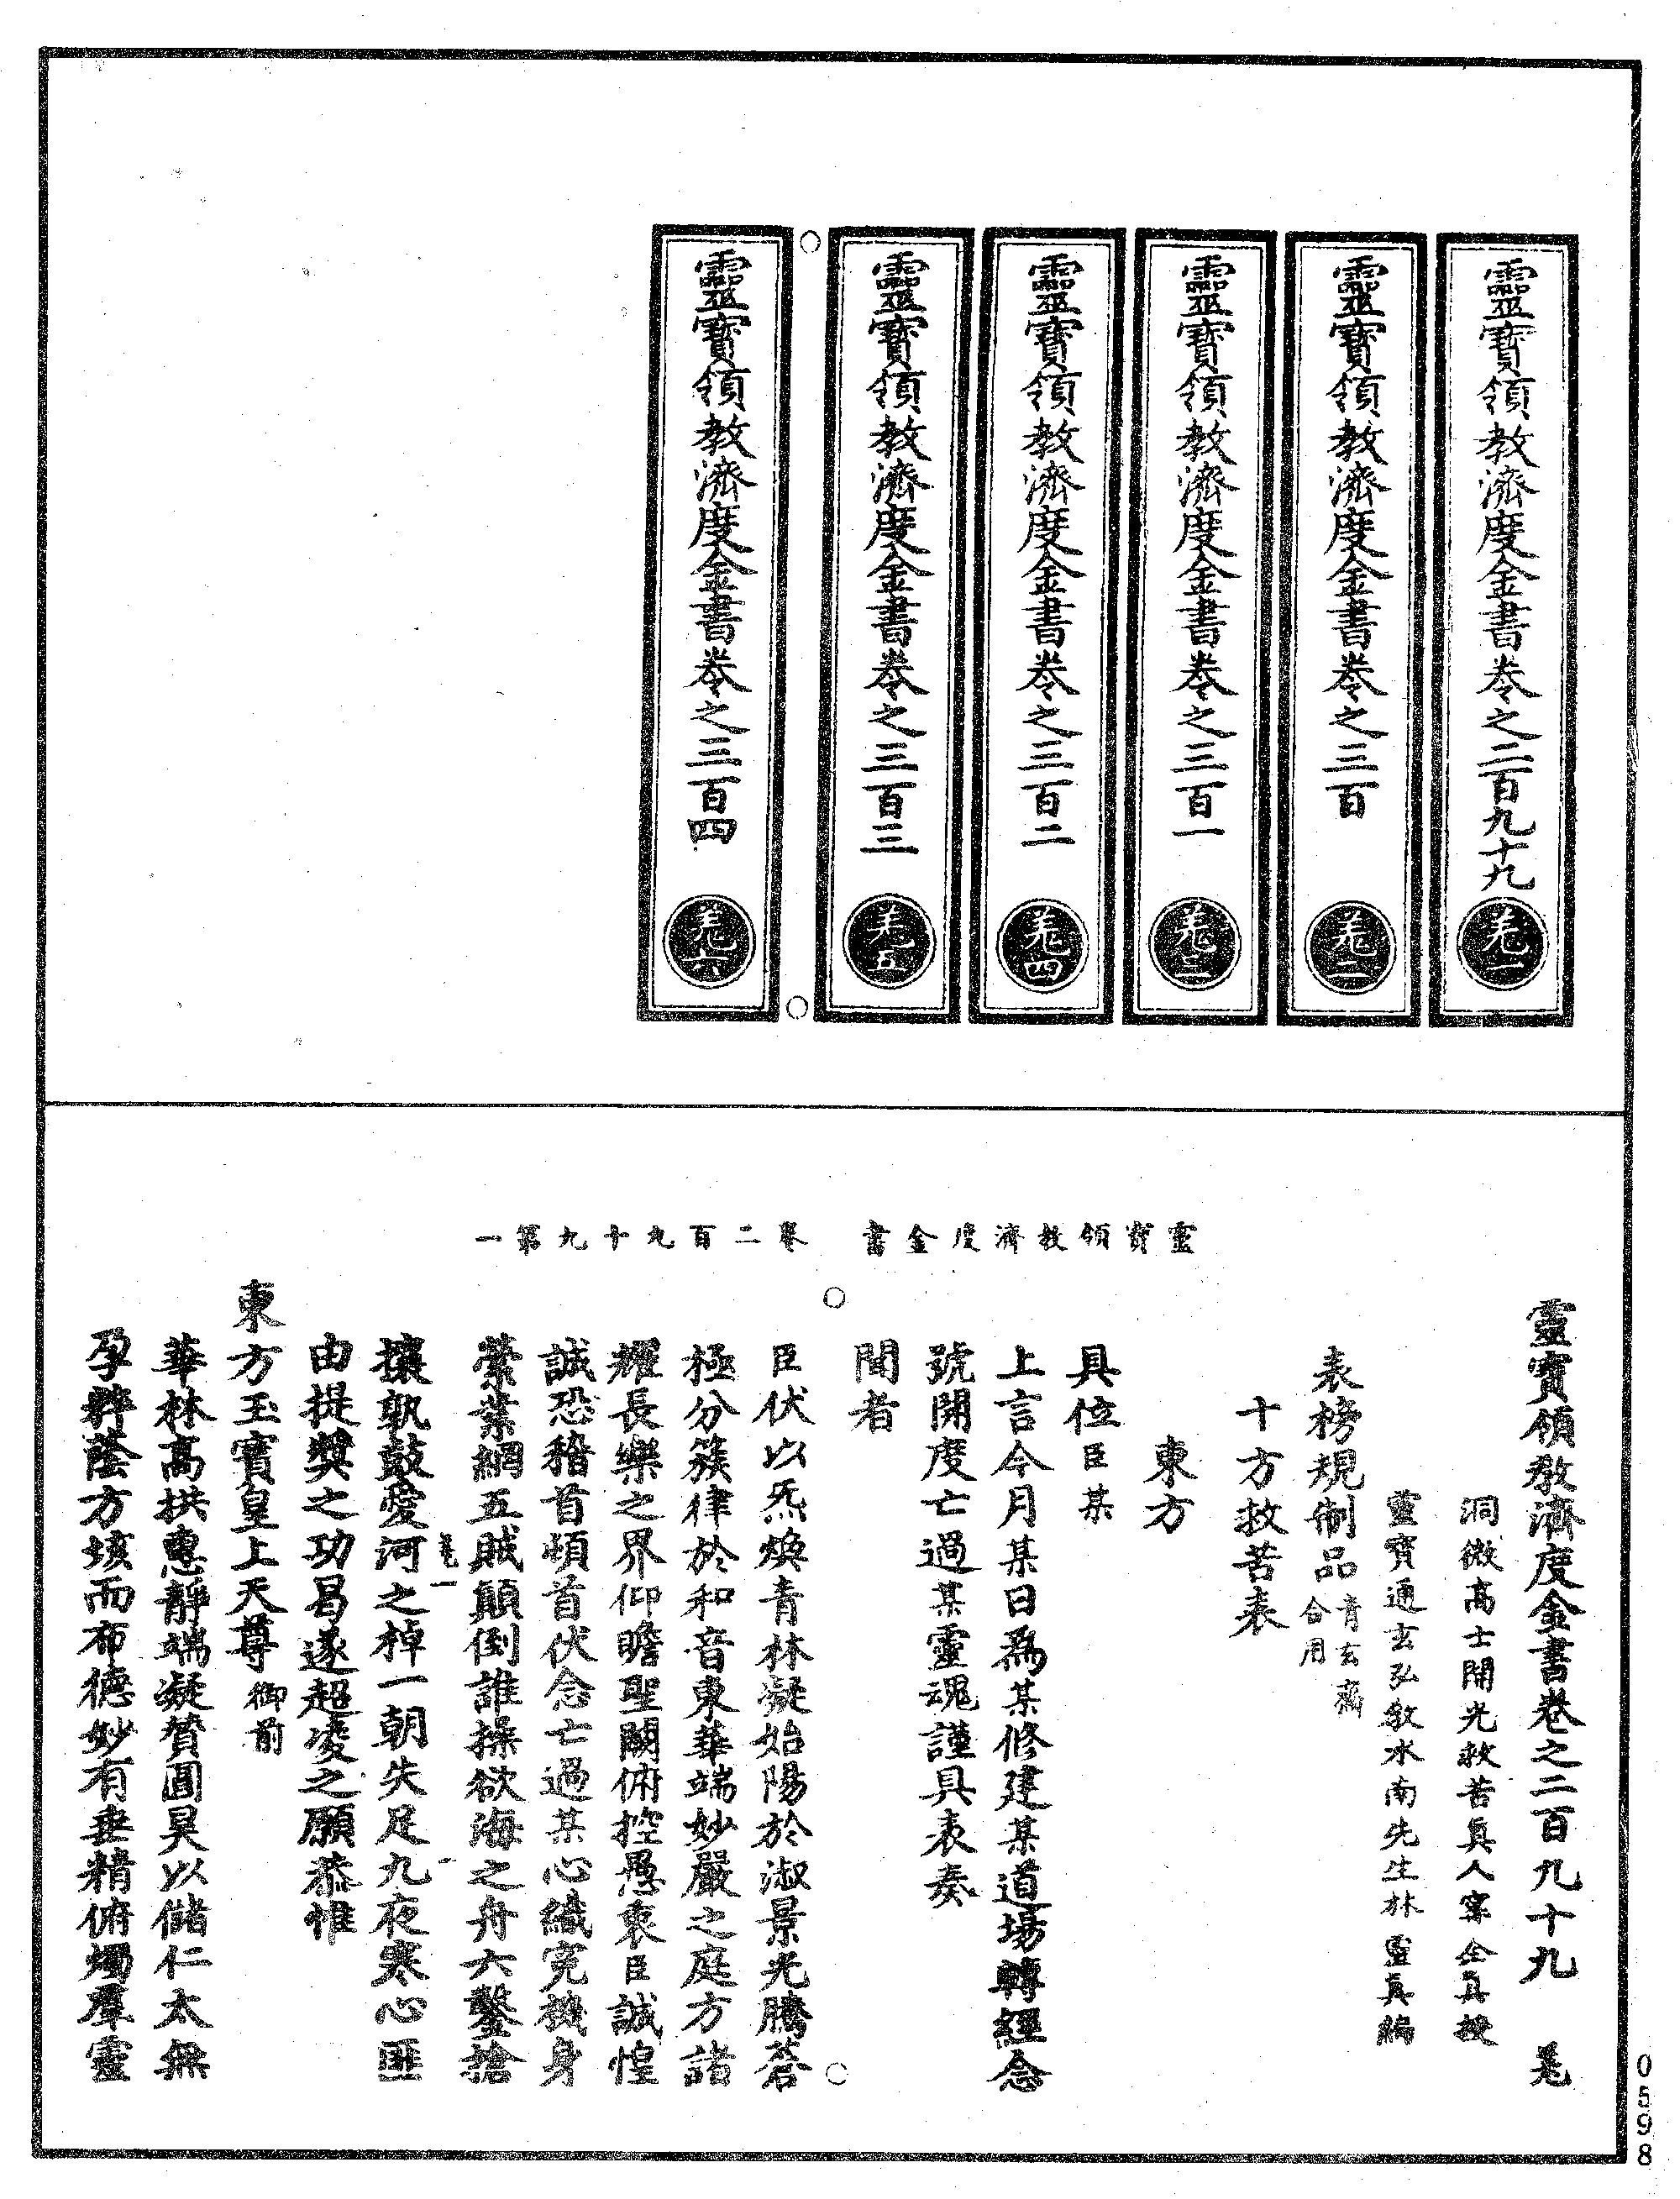 靈寶領教濟度金書卷之二百九十九 羗一
靈寶領教濟度金書卷之三百 羗二
靈寶領教濟度金書卷之三百一 羗三
靈寶領教濟度金書卷之三百二 羗四
靈寶領教濟度金書卷之三百三 羗五
靈寶領教濟度金書卷之三百四 羗六
靈寶領教濟度金書 卷二百九十九第一
靈寶領教濟度金書卷之二百九十九 羗一
洞微高士開光救苦真人甯全真授
靈寶通玄弘教水南先生林靈真編
表榜規制品青玄齋合用
十方救苦表
東方
具位臣某
上言今月某日為某修建某道場轉經念
號開度亡過某靈魂謹具表奏
聞者
臣伏以炁煥青林凝始陽於淑景光騰蒼
極分簇律於和音東華端妙嚴之庭方諸
耀長樂之界仰瞻聖闕俯控愚衷臣誠惶
誠恐稽首頓首伏念亡過某心織冤機身
縈業網五賊顛倒誰操欲海之舟六鑿搶
攘孰鼓愛河之棹一朝失足九夜寒心匪
由提獎之功曷遂超凌之願恭惟
東方玉寶皇上天尊御前
華林高拱惠靜端凝贊圓昊以儲仁太無
孕粹蔭方垓而布德妙有垂精俯燭羣靈
0598